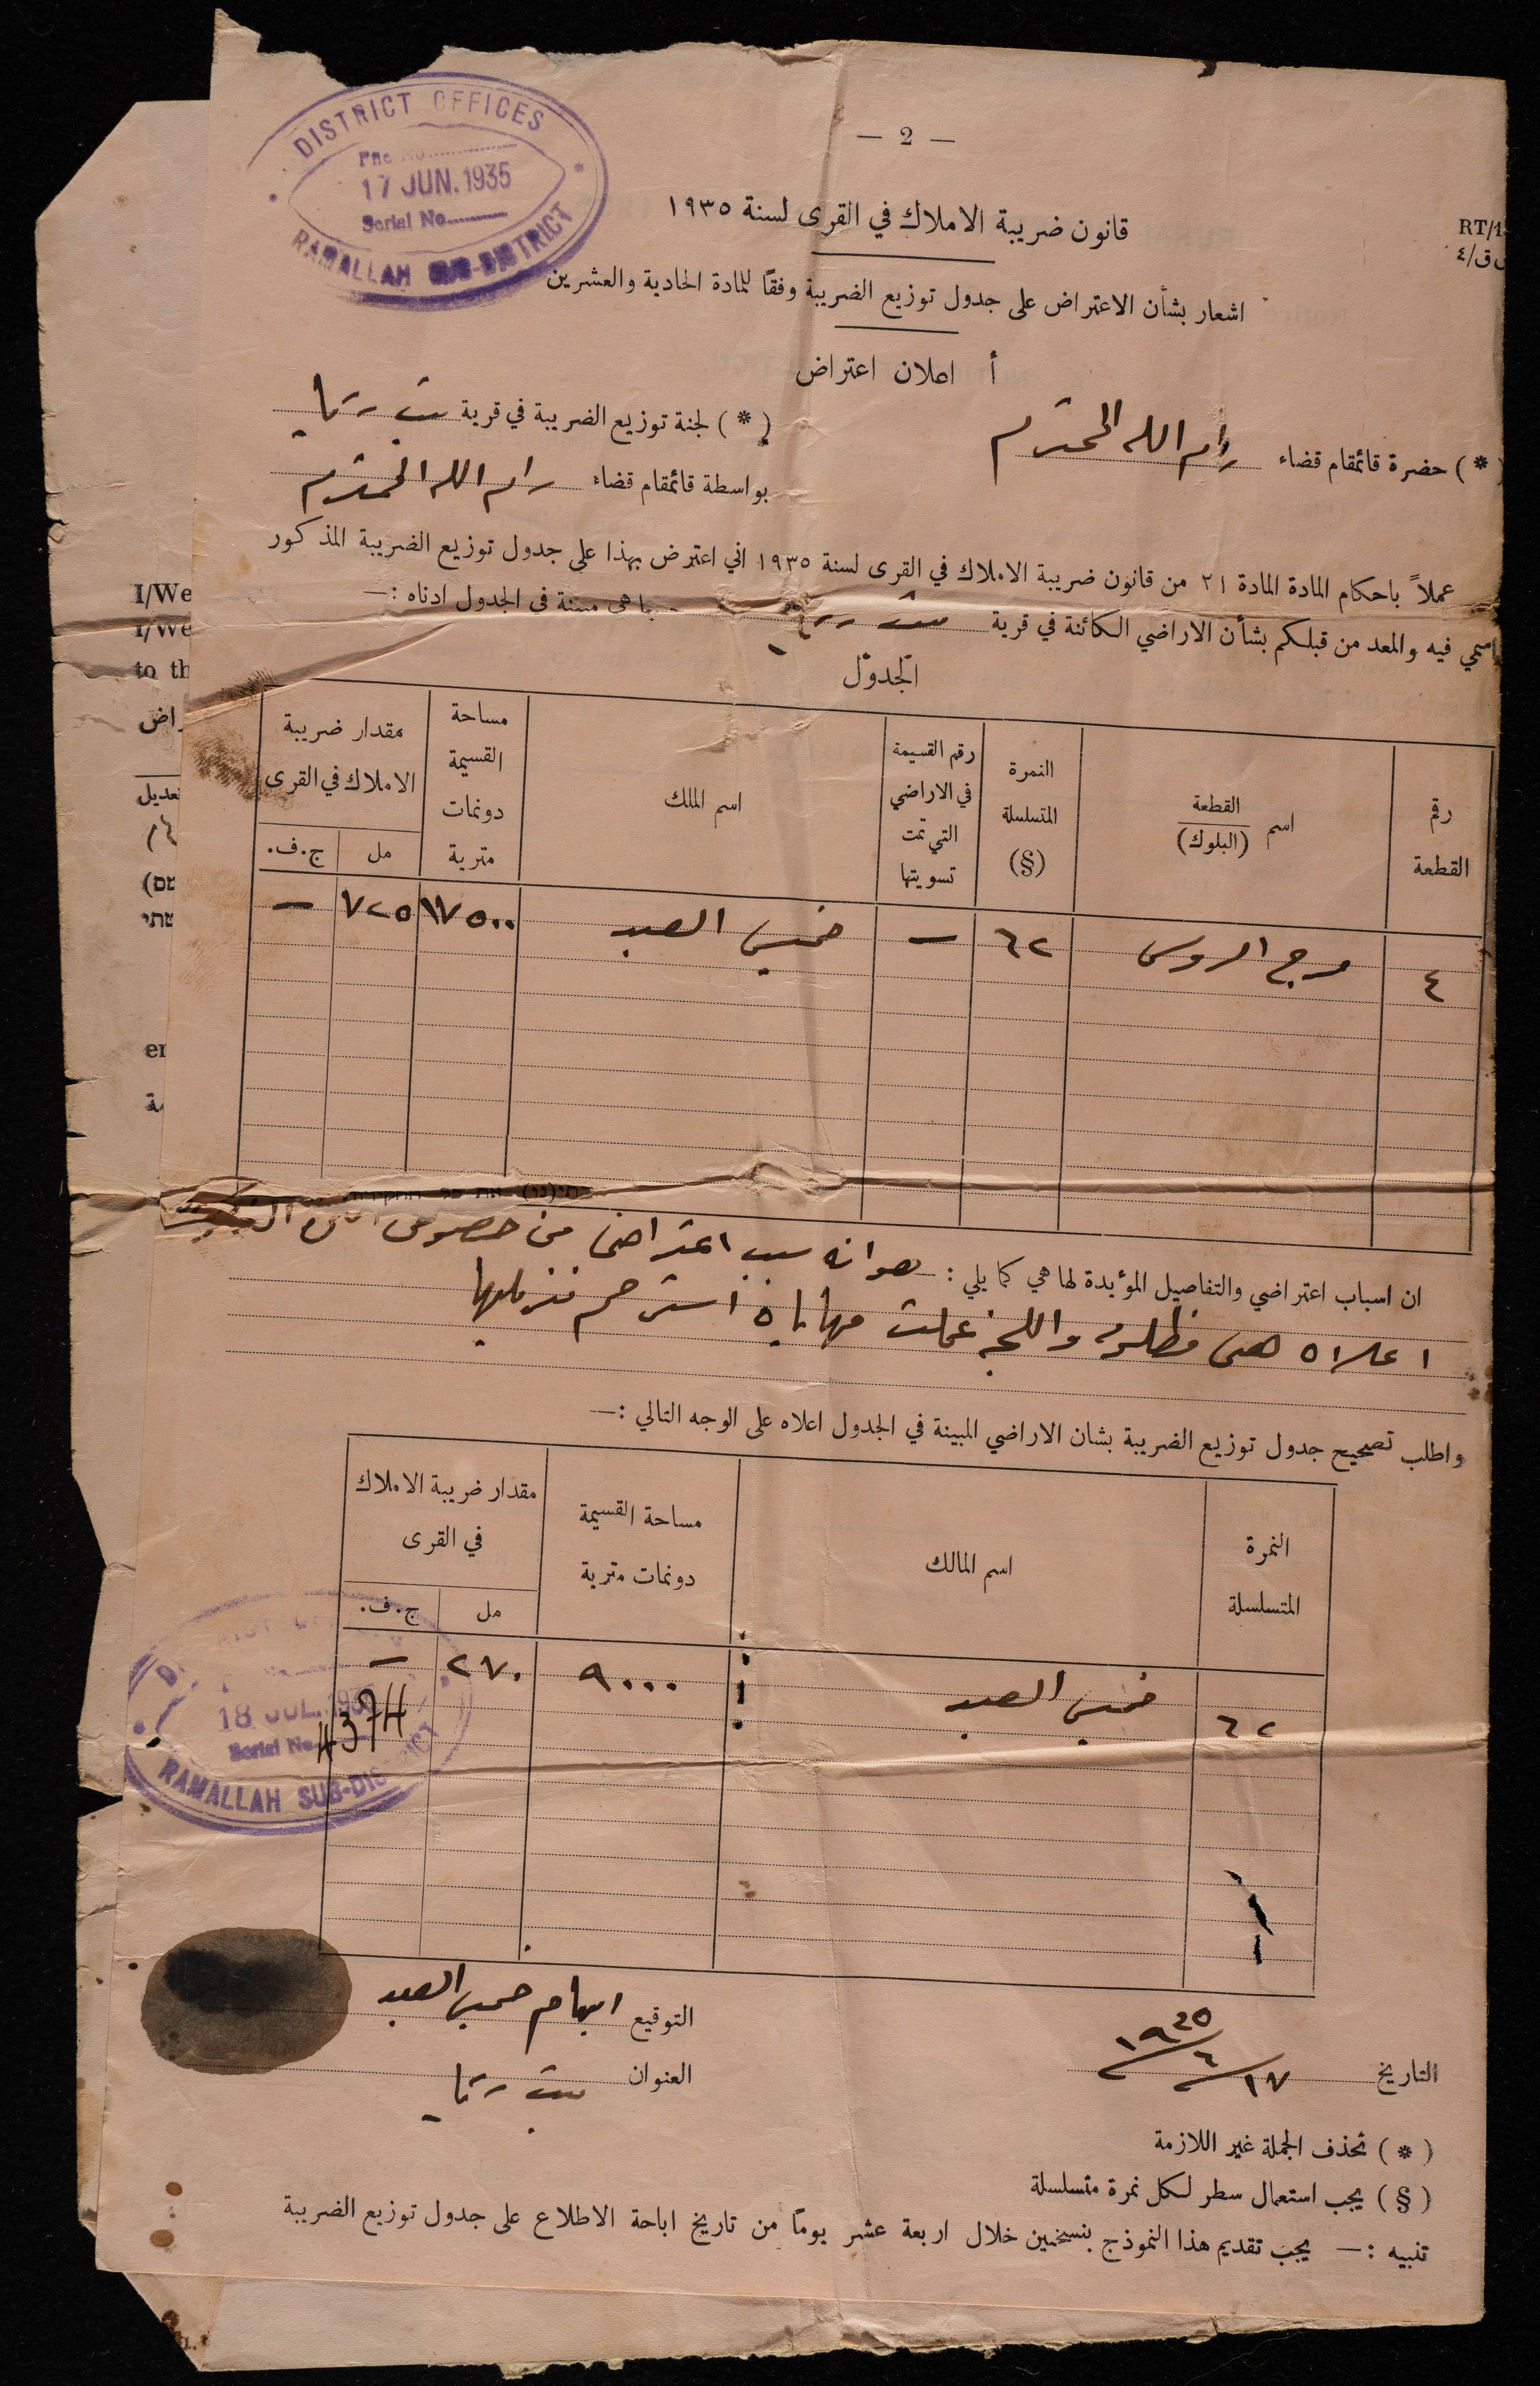 — 2 —
DISTRICT OFFICES
File No.
17 JUN. 1935
Serial No.
RAMALLAH SUB-DISTRICT
RT/1
ق/٤
قانون ضريبة الاملاك في القرى لسنة ١٩٣٥
اشعار بشأن الاعتراض على جدول توزيع الضريبة وفقًا للمادة الحادية والعشرين
أ اعلان اعتراض
(*) حضرة قائمقام قضاء رام الله المحترم
(*) لجنة توزيع الضريبة في قرية بيت ريما
بواسطة قائمقام قضاء رام الله المحترم
عملاً باحكام المادة المادة ٢١ من قانون ضريبة الاملاك في القرى لسنة ١٩٣٥ اني اعترض بهذا على جدول توزيع الضريبة المذكور
اسمي فيه والمعد من قبلكم بشأن الاراضي الكائنة في قرية بيت ريما كما هي مبينة في الجدول ادناه :—
الجدول
رقم القطعة
اسم القطعة (البلوك)
النمرة المتسلسلة (§)
رقم القسيمة في الاراضي التي تمت تسويتها
اسم الملك
مساحة القسيمة دونمات مترية
مقدار ضريبة الاملاك في القرى
مل ج.ف.
٤ مرج الروس ٦٢ — خميس العبد ١٧٥٠٠ ٧٢٥ —
ان اسباب اعتراضي والتفاصيل المؤيدة لها هي كما يلي : — هو انه سبب اعتراضي من خصوص
اعلاه هي واللجنة عملت استرحم تنزيلها
واطلب تصحيح جدول توزيع الضريبة بشان الاراضي المبينة في الجدول اعلاه على الوجه التالي :—
النمرة المتسلسلة
اسم المالك
مساحة القسيمة دونمات مترية
مقدار ضريبة الاملاك في القرى
مل ج.ف.
٦٢ خميس العبد ٩٠٠٠ ٢٧٠ —
18 JUL. 193
Serial No. 4374
RAMALLAH SUB-DIS
التوقيع ابهام خميس العبد
العنوان بيت ريما
التاريخ ١٧/٦/١٩٣٥
(*) تحذف الجملة غير اللازمة
(§) يجب استعمال سطر لكل نمرة متسلسلة
تنبيه :— يجب تقديم هذا النموذج بنسختين خلال اربعة عشر يومًا من تاريخ اباحة الاطلاع على جدول توزيع الضريبة
I/We
I/We
to th